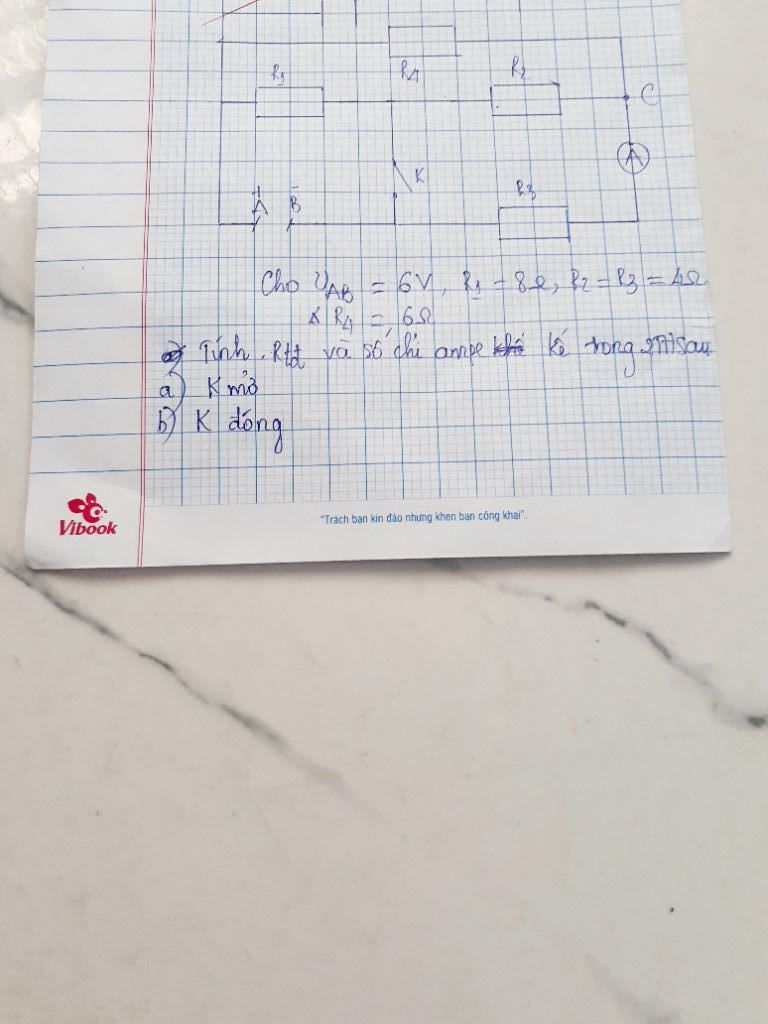 R4
R1
R2
C
A
K
+
A
-
B
R3
Cho UAB = 6V, R1 = 8Ω, R2 = R3 = 4Ω
& R4 = 6Ω
Tính Rtđ và số chỉ ampe kế trong 2TH sau
a) K mở
b) K đóng
Vibook
"Trách bạn kín đáo nhưng khen bạn công khai".